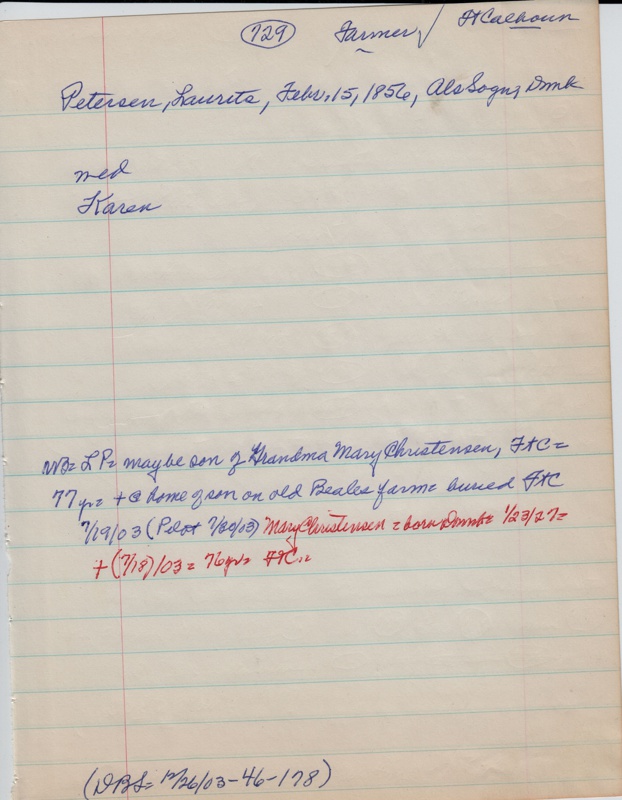 729 Farmer / Ft Calhoun
Petersen, Laurets, Febr. 15, 1856, Als Sogn, Dmk
med
Karen
NB= L P= maybe son of Grandma Mary Christensen, FtC=
77 yr= + @ home of son on old Beales farm= buried FtC
7/19/03 (Pilot 7/20/03) Mary Christensen = born Dmk= 1/23/27=
+ (7/18)/03= 76 yr= FtC..
(DBS= 12/26/03-46-178)